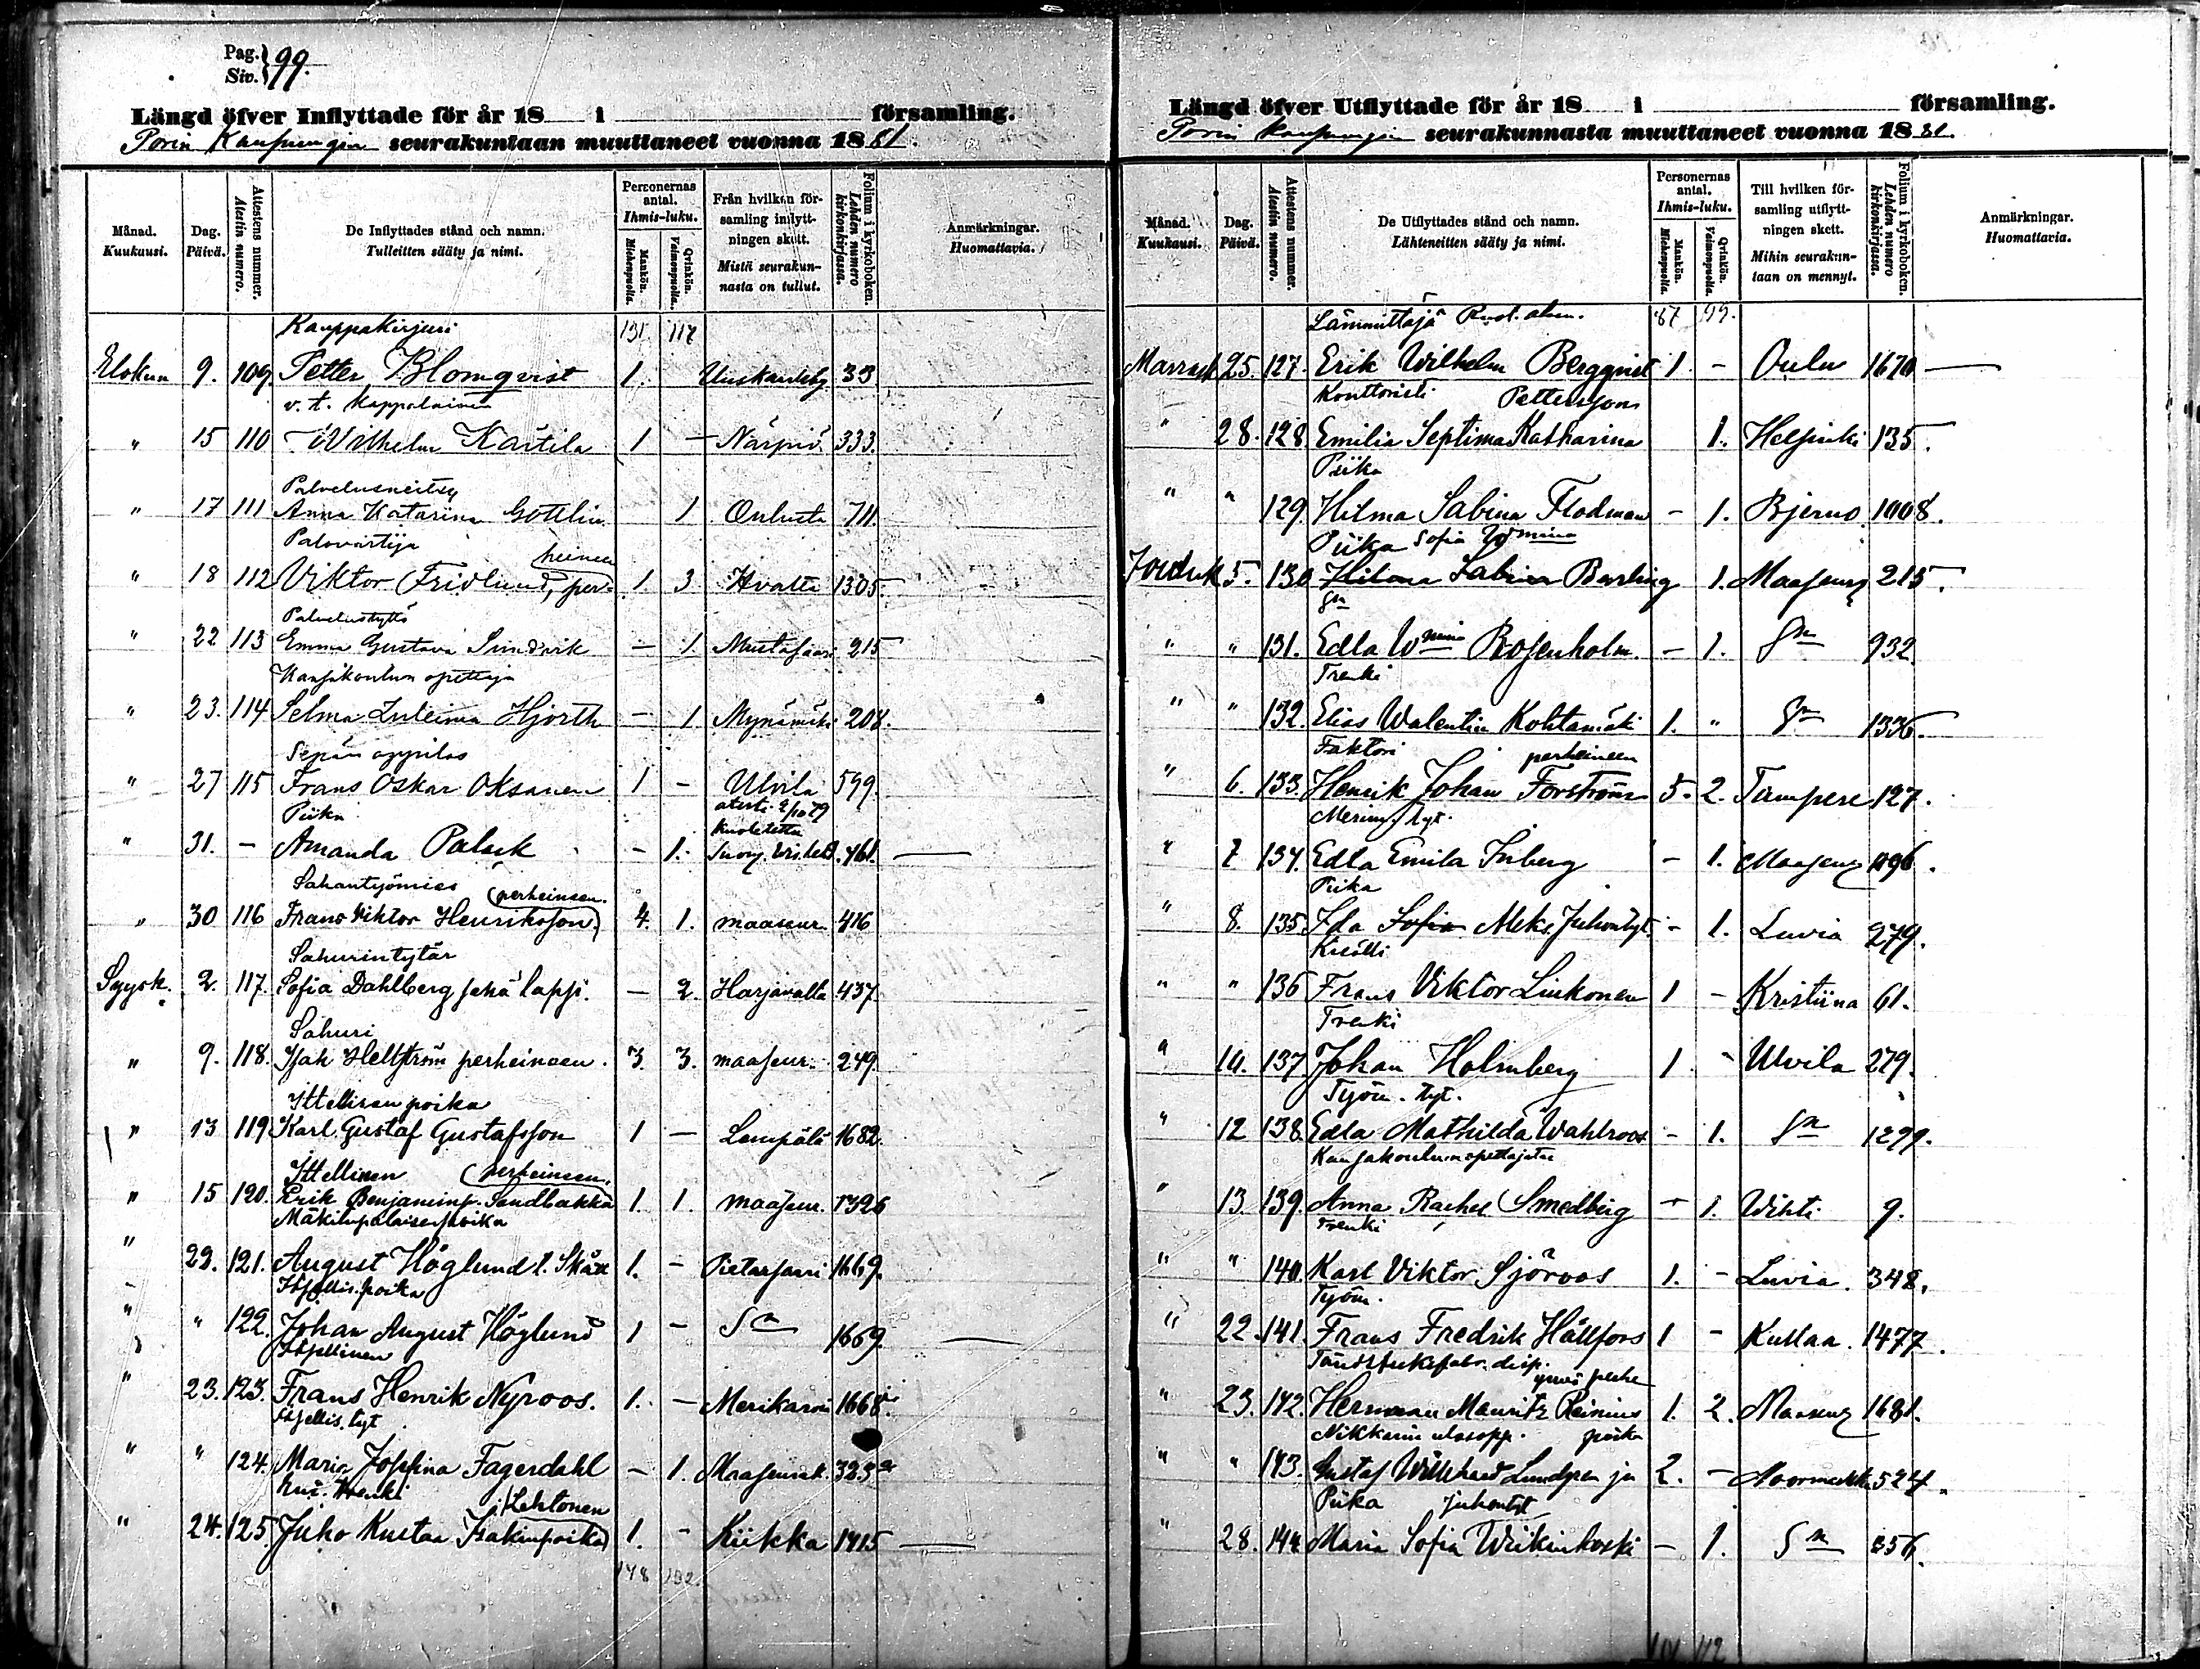 Pag. Siv. } 99.
Längd öfver Inflyttade för år 18 i församling.
Porin Kaupungin seurakuntaan muuttaneet vuonna 18 81.
Månad. Kuukausi.
Dag. Päivä.
Attestens nummer. Atestin numero.
De Inflyttades stånd och namn. Tulleitten sääty ja nimi.
Personernas antal. Ihmis-luku.
Mankön. Miehenpuolia.
Qvinkön. Vaimonpuolia.
Från hvilken församling inflyttningen skett. Mistä seurakunnasta on tullut.
Folium i kyrkoboken. Lehden numero kirkonkirjassa.
Anmärkningar. Huomattavia.
Kauppakirjuri 131 117
Elokuu 9. 109. Petter Blomqvist 1. Uuskaarleby 33
v. t. Kappalainen
" 15 110 Wilhelm Kärtilä 1 — Närpiö 333.
Palvelusneitsy
" 17 111 Anna Katarina Gottlin 1 Oulusta 711.
Palovartija
" 18 112 Viktor Fridlund, perheineen 1. 3 Hvatta 1305.
Palvelustyttö
" 22 113 Emma Gustava Sundvik — 1 Mustasaari 215
Kansakoulun opettaja
" 23. 114 Selma Zuleima Hjorth — 1 Mynämäki 208.
Sepän oppilas
" 27 115 Frans Oskar Oksanen 1 - Ulvila 599.
Piika
" 31. - Amanda Palck - 1. 461. —
Sahantyömies
" 30 116 Frans Viktor Henriksson perheineen. 4. 1. maaseur. 416
Sahurintytär
Syysk. 2. 117. Sofia Dahlberg sekä lapsi. — 2. Harjavalta 437
Sahuri
" 9. 118. Isak Hellström perheineen. 3. 3. maaseur. 249.
Ittellisen poika
" 13 119 Karl Gustaf Gustafsson 1 — Lempälä 1682.
Ittellinen perheineen.
" 15 120. Erik Benjaminp. Sandbakka 1. 1. maaseur. 1326
Mäkitupalaisen poika
" 22. 121. August Höglund l. Skåx 1. - Pietarsaari 1669.
Itsellis. poika
" " 122. Johan August Höglund 1 - Sn 1669. —
Itsellinen
" 23. 123. Frans Henrik Nyroos. 1. - Merikarvia 1668.
Itsellis. tyt.
" " 124. Maria Josefina Fagerdahl - 1. Maaseurak. 323
renki Lehtonen
" 24. 125. Juho Kustaa Isakinpoika 1. - Kiikka 1415 —
148 132.
Längd öfver Utflyttade för år 18 i församling.
Porin kaupungin seurakunnasta muuttaneet vuonna 18 81.
Månad. Kuukausi.
Dag. Päivä.
Attestens nummer. Atestin numero.
De Utflyttades stånd och namn. Lähteneitten sääty ja nimi.
Personernas antal. Ihmis-luku.
Mankön. Miehenpuolia.
Qvinkön. Vaimonpuolia.
Till hvilken församling utflyttningen skett. Mihin seurakuntaan on mennyt.
Folium i kyrkoboken. Lehden numero kirkonkirjassa.
Anmärkningar. Huomattavia.
Lämmittäjä 87 99.
Marrask 25. 127. Erik Wilhelm Bergqvist 1. - Oulu 1670 —
Konttoristi Pettersson
" 28. 128. Emilia Septima Katharina 1. Helsinki 135.
Piika
" " 129. Hilma Sabina Flodman - 1. Bjerno 1008.
Piika Sofia Wmina
Jouluk 5. 130. Hilma Sabina Barling 1. Maaseur 215.
Sn
" " 131. Edla Wmina Rosenholm. - 1. Sn 932
Trenki
" " 132. Elias Walentin Kohtamäki 1. " Sn 1336.
Faktori perheineen
" 6. 133. Henrik Johan Forström 5. 2. Tampere 127.
Merim. tyt.
" 7 134. Edla Emila Inberg - 1. Maaseur 1096.
Piika
" 8. 135. Ida Sofia Aleks. Juhontyt. - 1. Luvia 279.
Kisälli
" " 136 Frans Viktor Liukonen 1 - Kristiina 61.
Trenki
" 10. 137. Johan Holmberg 1 - Ulvila 279.
Työm. tyt.
" 12 138. Edla Mathilda Wahlroos - 1. Sn 1299.
Kansakoulun opettajatar
" 13. 139. Anna Rachel Smedberg - 1. Wihti 9.
Trenki
" " 140. Karl Viktor Sjöroos 1. - Luvia. 348.
Työm.
" 22. 141. Frans Fredrik Hällfors 1 - Kullaa. 1477.
Tändsticksfabr. disp. ynnä perhe
" 23. 142. Herman Mauritz Reinius 1. 2. Maaseur 1681.
Nikkarin poika
" " 143. Gustaf Willehard Lundgren ja 2. - Noormarkku 524.
Piika Juhontyt
" 28. 144. Maria Sofia Wiikinkoski — 1. Sn 356.
112